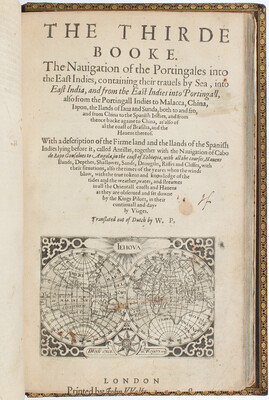 THE THIRDE
BOOKE.
The Nauigation of the Portingales into
the East Indies, containing their trauels by Sea, into
East India, and from the East Indies into Portingall,
also from the Portingall Indies to Malacca, China,
Iapon, the Ilands of Iaua and Sunda, both to and fro,
and from China to the Spanish Indies, and from
thence backe againe to China, as also of
all the coast of Brasilia, and the
Hauens thereof.
With a description of the Firme land and the Ilands of the Spanish
Indies lying before it, called Antillas, together with the Nauigation of Cabo
de Lopo Gonsalues to Angola, in the coast of Ethiopia, with all the courses, Hauens
Ilands, Depthes, Shallowes, Sands, Droughts, Riffes and Cliffes, with
their situations, also the times of the yeare when the winds
blow, with the true tokens and knowledge of the
tides and the weather, water, and streames
in all the Orientall coasts and Hauens
as they are obserued and set downe
by the Kings Pilots, in their
continuall and day-
ly Viages.
Translated out of Dutch by W. P.
IEHOVA
LONDON
Printed by Iohn